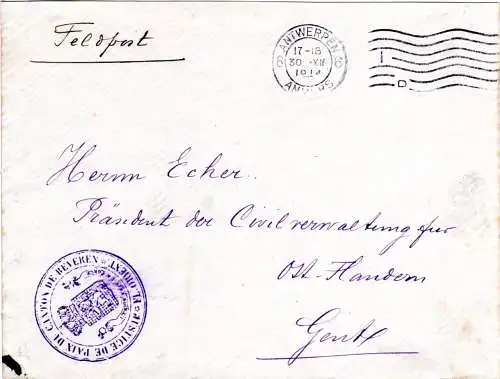 Feldpost
ANTWERPEN
17-18
30 XII
1914
ANVERS
Herrn Ecker.
Präsident der Civilverwaltung für
Ost-Flandern
Gent
JUSTICE DE PAIX DU CANTON DE BEVEREN